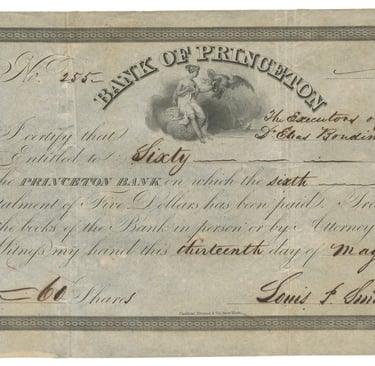 No. 255
BANK OF PRINCETON
The Executors o
I certify that
Elias Boudin
Entitled to Sixty
he PRINCETON BANK on which the sixth
talment of Five Dollars has been paid. Tra
the books of the Bank in person or by Attorney
Witness my hand this thirteenth day of May
60 Shares
Louis P. Smi